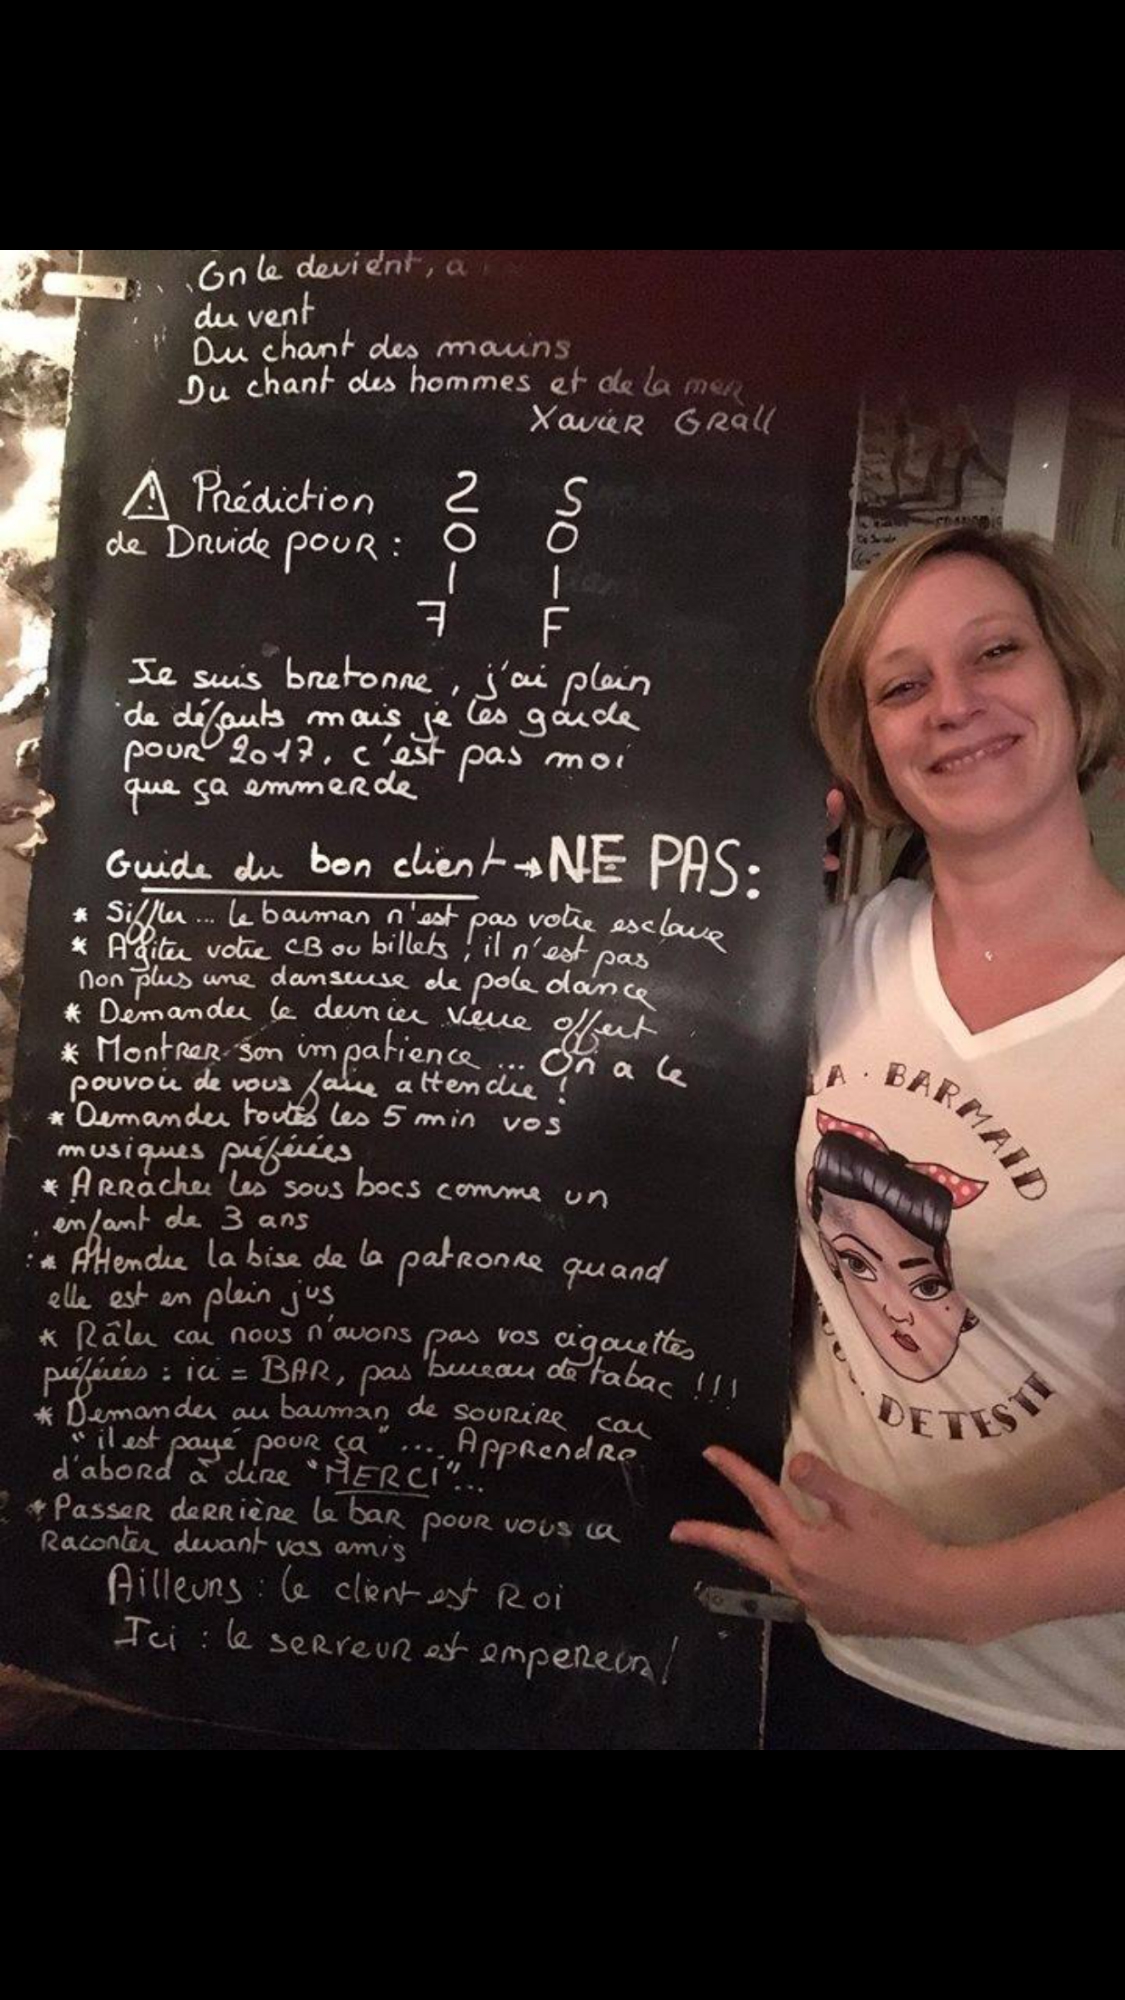 On le devient, a
du vent
Du chant des marins
Du chant des hommes et de la mer
Xavier Grall
⚠ Prédiction
de Druide pour :
2 S
0 O
1 I
7 F
Je suis bretonne, j'ai plein
de défauts mais je les garde
pour 2017, c'est pas moi
que ça emmerde
Guide du bon client → NE PAS:
* Siffler... le barman n'est pas votre esclave
* Agiter votre CB ou billets, il n'est pas
non plus une danseuse de pole dance
* Demander le dernier verre offert
* Montrer son impatience... On a le
pouvoir de vous faire attendre !
* Demander toutes les 5 min vos
musiques préférées
* Arracher les sous bocs comme un
enfant de 3 ans
* Attendre la bise de la patronne quand
elle est en plein jus
* Râler car nous n'avons pas vos cigarettes
préférées : ici = BAR, pas bureau de tabac !!!
* Demander au barman de sourire car
"il est payé pour ça"... Apprendre
d'abord à dire "MERCI"...
* Passer derrière le bar pour vous la
raconter devant vos amis
Ailleurs : le client est Roi
Ici : le serveur est empereur !
LA · BARMAID
DETESTE